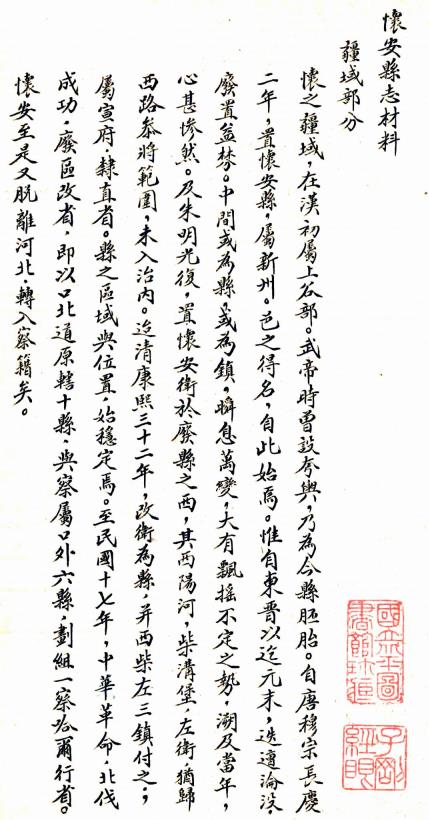 懷安縣志材料
疆域部分
懷之疆域，在漢初屬上谷部。武帝時曾設夸輿，乃為今縣胚胎。自唐穆宗長慶
二年，置懷安縣，屬新州。邑之得名，自此始焉。惟自東晉以迄元末，迭遭淪沒．
廢置益棼。中間或為縣，或為鎮，瞬息萬變，大有飄搖不定之勢，溯及當年，
心甚慘然。及朱明光復，置懷安衛於廢縣之西，其西陽河，柴溝堡，左衛猶歸
西路叅將範圍，未入治內。迨清康熙三十二年，改衛為縣，并西柴左三鎮付之；
屬宣府．隸直省。縣之區域與位置，始穩定焉。至民國十七年，中華革命，北伐
成功．廢區改省，即以口北道原轄十縣．與察屬口外六縣，劃組一察哈爾行省。
懷安至是又脫離河北．轉入察籍矣。
子剛
經眼